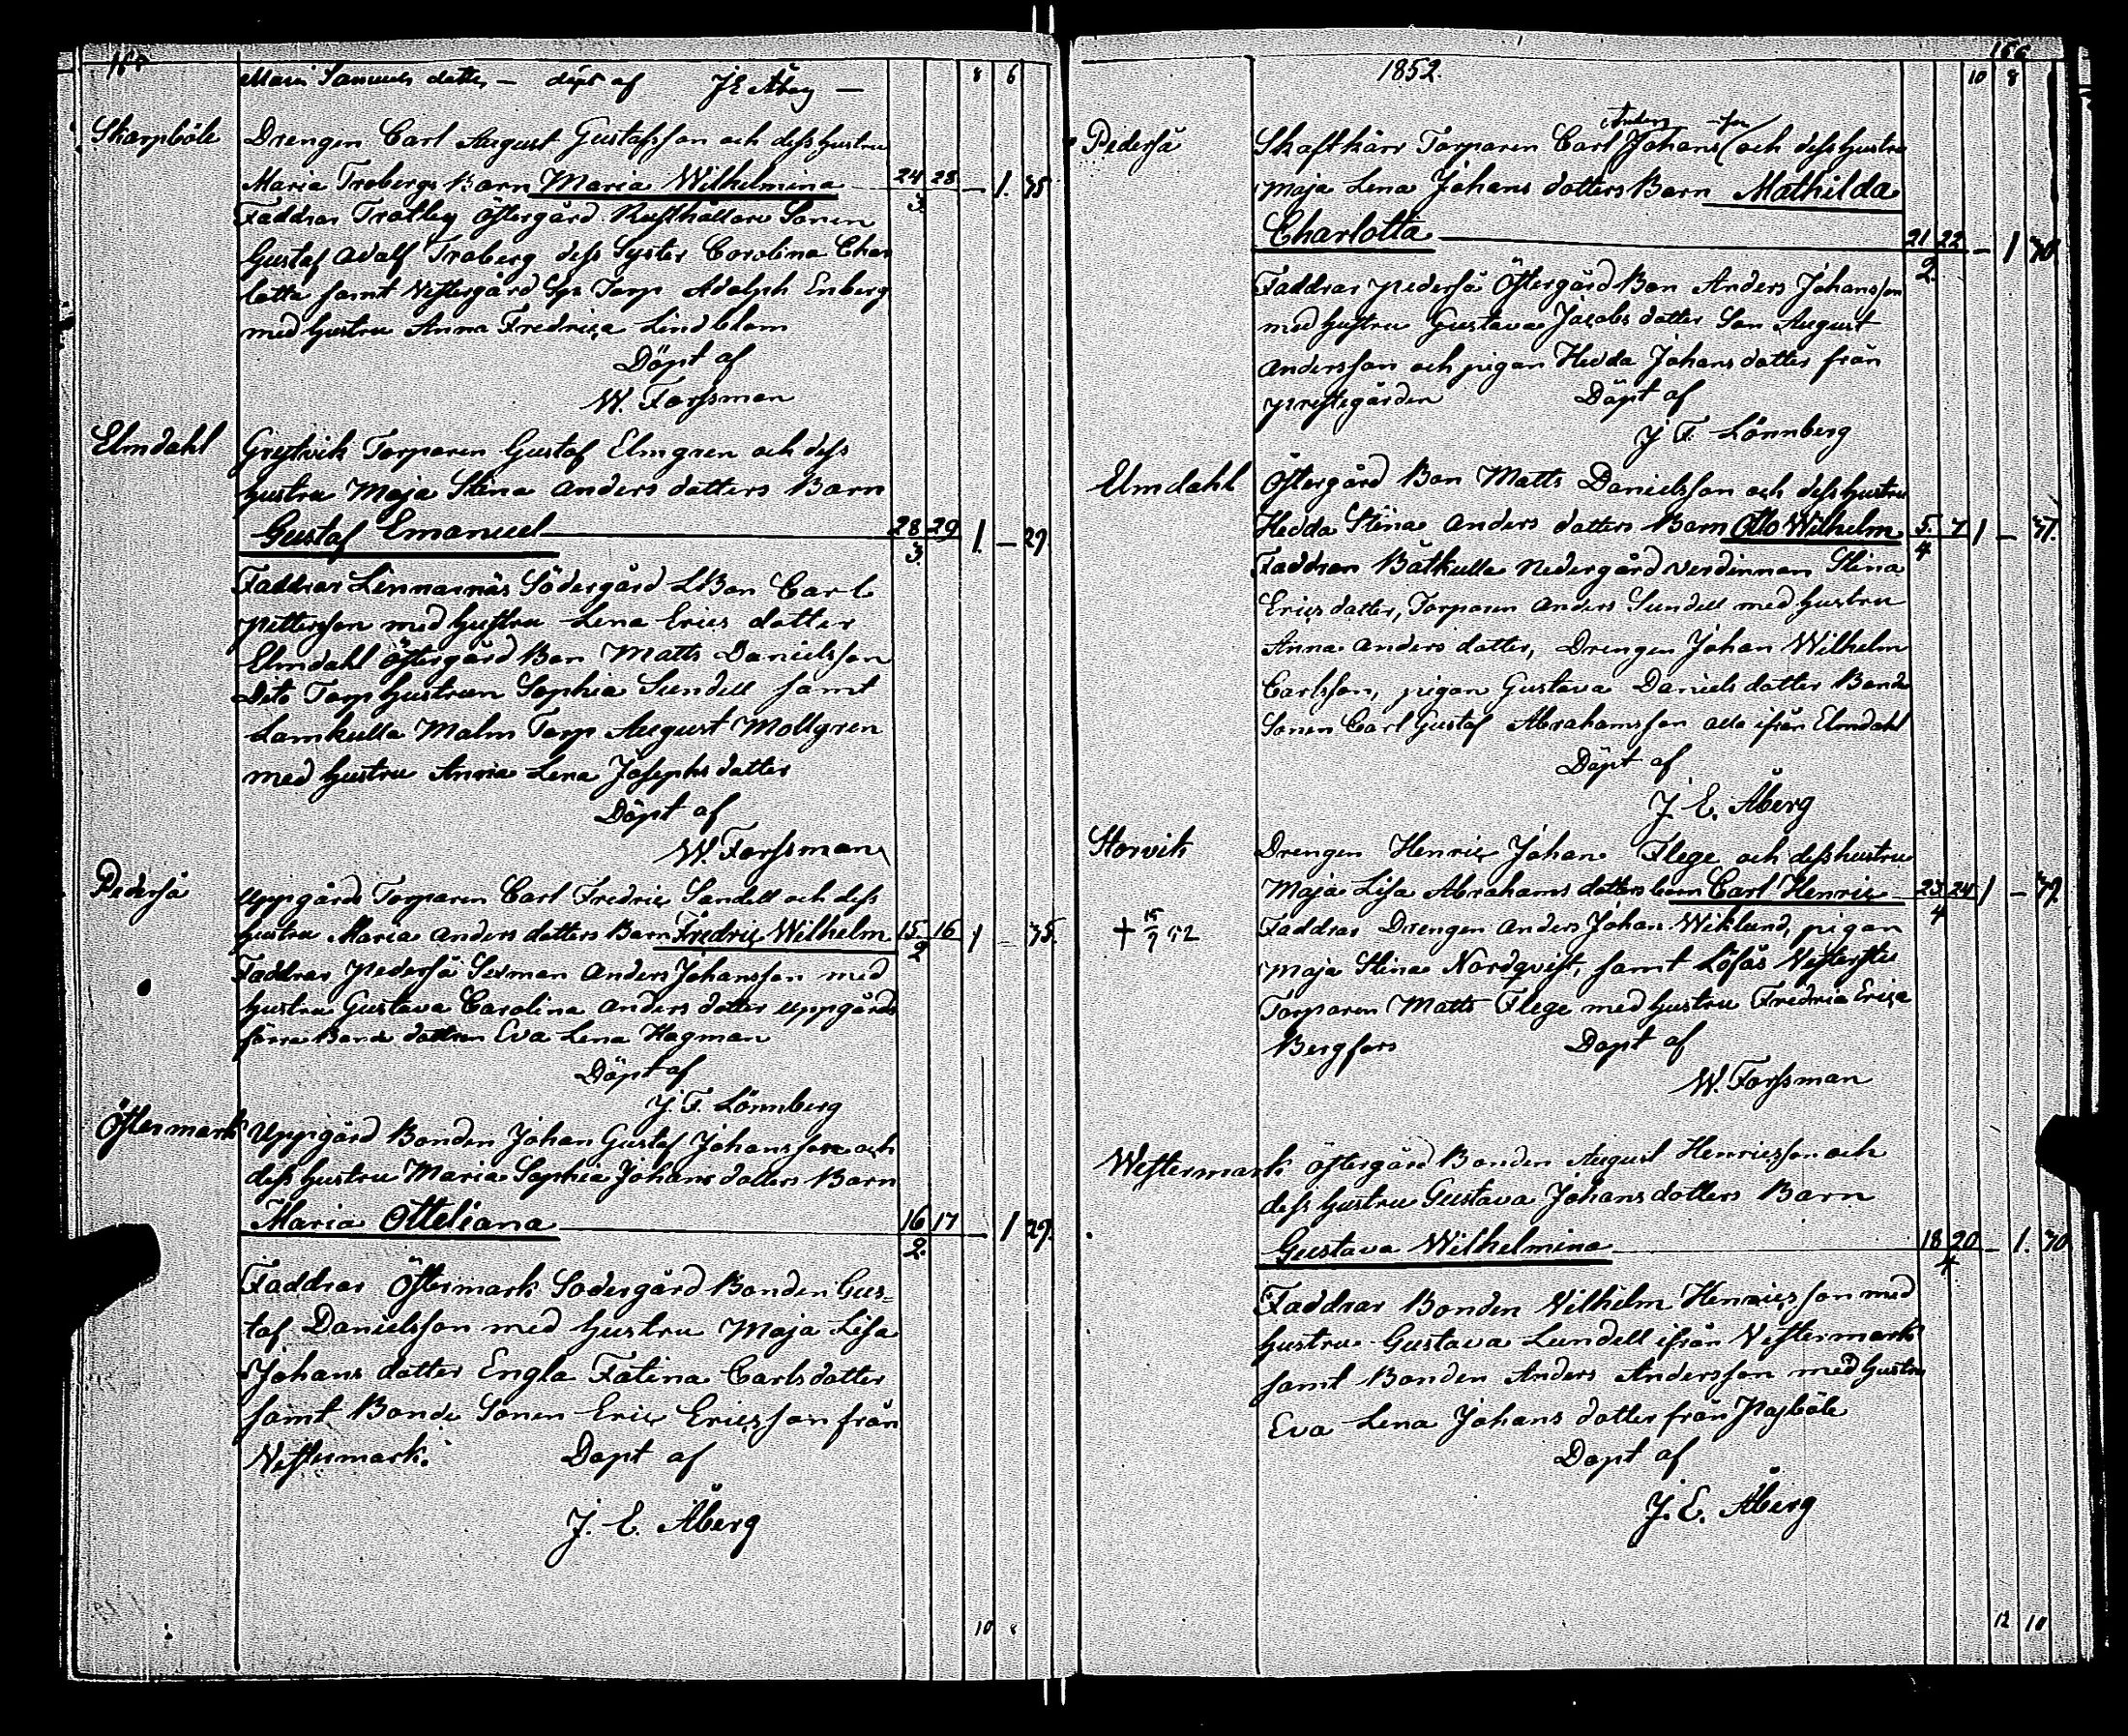 Maria Samuels datter — döpt af J E Åberg — 8 6
Skarpböle Drengen Carl August Gustafsson och dess hustru
Maria Trobergs Barn Maria Wilhelmina 24 28 — 1. 35
3.
Faddrar Tratby Östergård Rusthållare Sonen
Gustaf Adolf Troberg dess Syster Carolina Char
lotta samt Vestergård Torp Adolph Enberg
med hustru Anna Fredrica Lindblom
Döpt af
W. Forssman
Elmdahl Torparen Gustaf Elmgren och dess
hustru Maja Stina Anders datters Barn
Gustaf Emanuel 28 29 1. — 29
3.
Faddrar Lännarnäs Södergård Carl
Pettersson med hustru Lena Erics datter
Elmdahl Östergård Bon Matts Danielsson
Dito Torp hustrun Sophia Sundell samt
Lamkulla Malm Torp August Mollgren
med hustru Anna Lena Josephs datter
Döpt af
W. Forssman
Pederså Uppgårds Torparen Carl Fredric Sandell och dess
hustru Maria Anders datters Barn Fredric Wilhelm 15 16 1 — 35.
2
Faddrar Pederså Sexman Anders Johansson med
hustru Gustava Carolina Anders datter Uppgårds
förra Bonde dottren Eva Lena Hagman
Döpt af
J. F. Lönnberg
Östermark Uppgård Bonden Johan Gustaf Johansson och
dess hustru Maria Sophia Johans datters Barn
Maria Otteliana 16 17 — 1 29.
2.
Faddrar Östermark Södergård Bonden Gus=
taf Danielsson med hustru Maja Lisa
Johans datter Engla Fatina Carlsdatter
samt Bonde Sonen Eric Ericsson från
Vestermark. Döpt af
J. E. Åberg
10 8
166
1852. 10 8
Anders -son
Pederså Skaftkärr Torparen Carl Johans och dess hustru
Maja Lena Johans datters Barn Mathilda
Charlotta 21 22 — 1 40
2.
Faddrar Pederså Östergård Bon Anders Johansson
med hustru Gustava Jacobs datter Son August
Andersson och pigan Hedda Johans datter från
Prestegården Döpt af
J. F. Lönnberg
Elmdahl Östergård Bon Matts Danielsson och dess hustru
Hedda Stina Anders datters Barn Otto Wilhelm 5. 7 1 —
4
Faddrar Båtkulla Nedergård Verdinnan Stina
Erics datter, Torparen Anders Sundell med hustru
Anna Anders datter, Drengen Johan Wilhelm
Carlsson, pigan Gustava Daniels datter Bonde
Sonen Carl Gustaf Abrahamsson alla ifrån Elmdahl
Döpt af
J. E. Åberg
Storvik Drengen Henric Johan Flege och dess hustru
Maja Lisa Abrahams datters barn Carl Henric 23 24 1 —
4
+ 15/7 52 Faddrar Drengen Anders Johan Wiklund, pigan
Maja Stina Nordqvist, samt Löfås
Torparen Matts Flege med hustru Fredrica Erica
Bergfors Döpt af
W. Forssman
Westermark Östergård Bonden August Henricsson och
dess hustru Gustava Johans datters Barn
Gustava Wilhelmina 18 20 — 1. 40
4
Faddrar Bonden Vilhelm Henricsson med
hustru Gustava Lundell ifrån Vestermark
samt Bonden Anders Andersson med hustru
Eva Lena Johans datter från Pajböle
Döpt af
J. E. Åberg
12 10